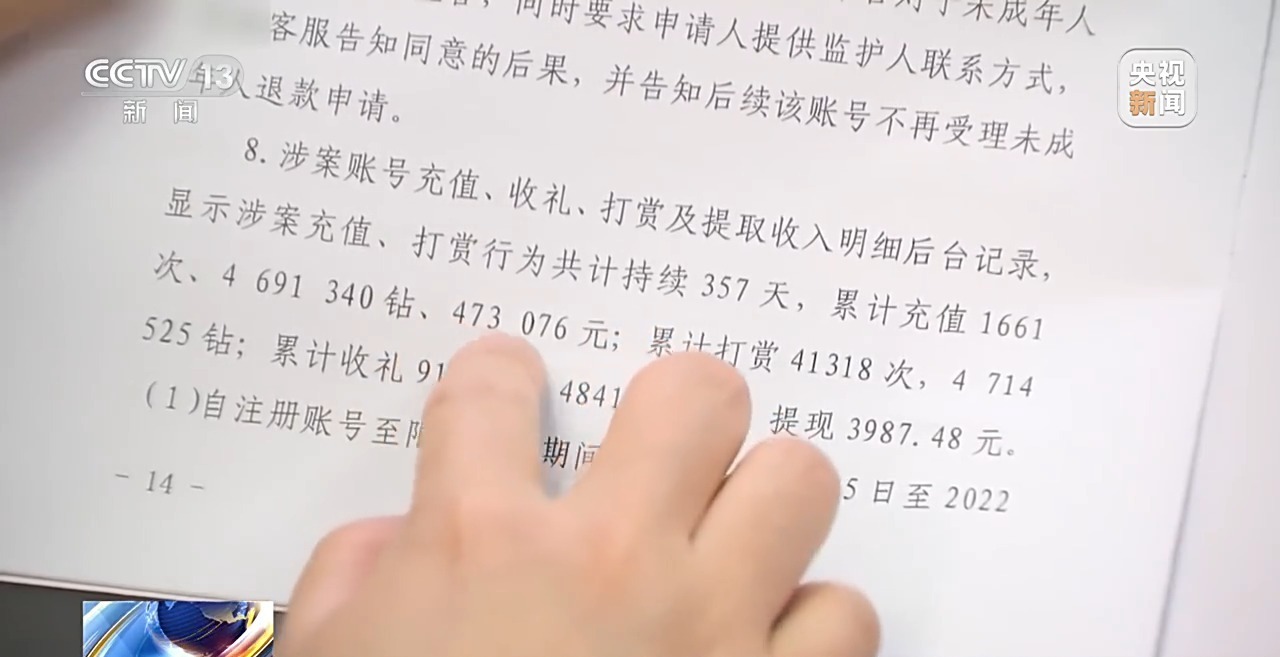 CCTV 13
新闻
央视
新闻
同时要求申请人提供监护人联系方式,
客服告知同意的后果, 并告知后续该账号不再受理未成
年人退款申请。
8. 涉案账号充值、收礼、打赏及提取收入明细后台记录,
显示涉案充值、打赏行为共计持续 357 天, 累计充值 1661
次、4 691 340 钻、473 076 元; 累计打赏 41318 次, 4 714
525 钻; 累计收礼 91 4841 提现 3987.48 元。
(1)自注册账号至 期间 5 日至 2022
- 14 -